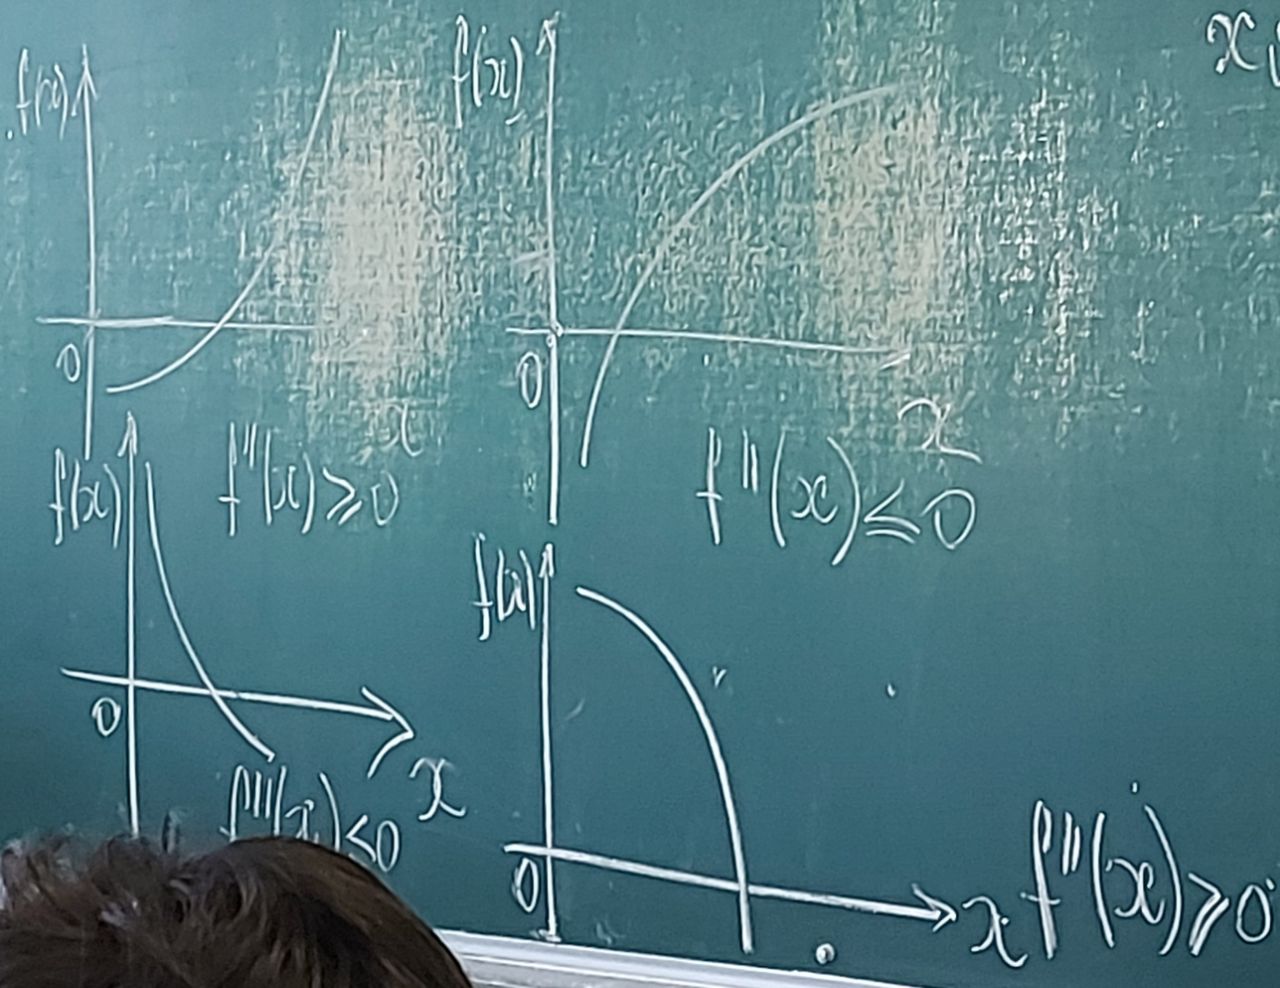 f(x)
0
x
f''(x)≥0
f(x)
0
x
f''(x)≤0
f(x)
0
x
f''(x)≤0
f(x)
0
x
f''(x)≥0
x